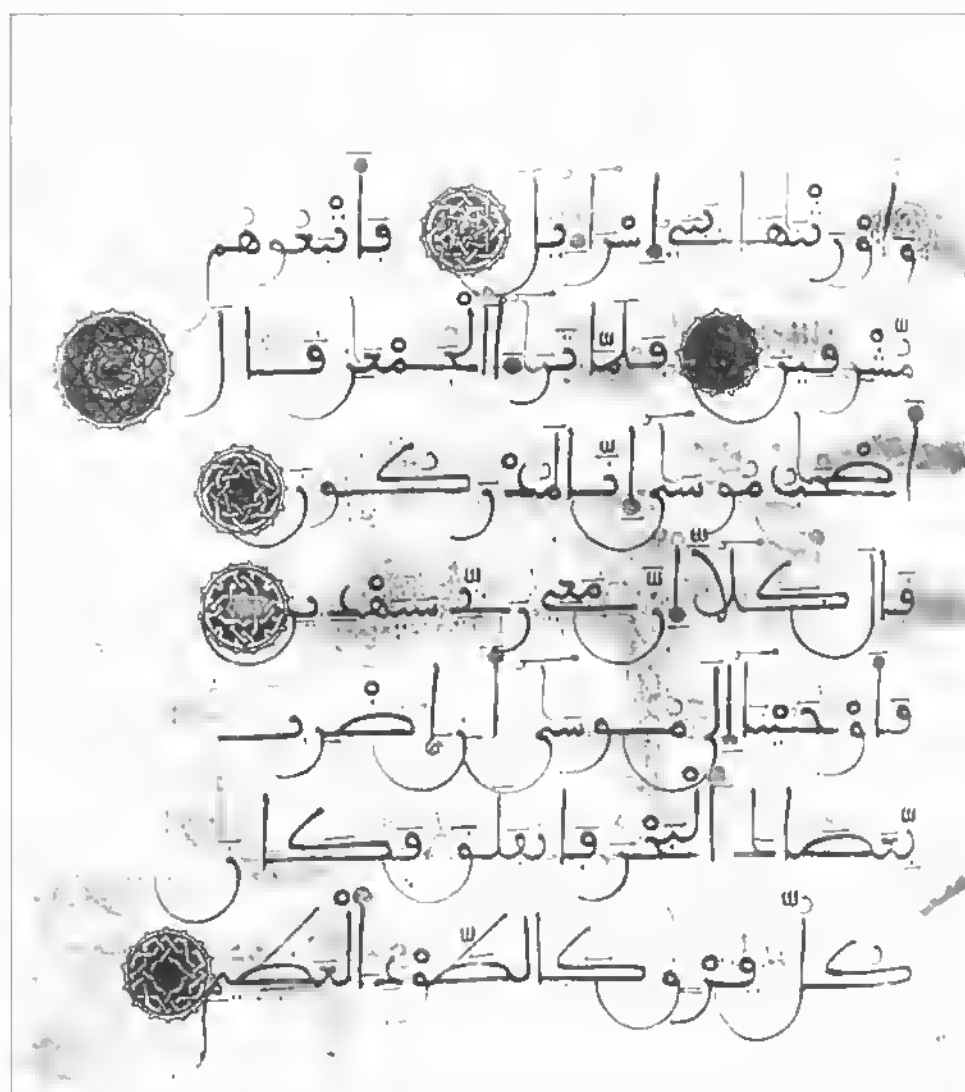 وَأَوْرَثْنَٰهَا بَنِي إِسْرَٰءِيلَ فَأَتْبَعُوهُم
مُّشْرِقِينَ فَلَمَّا تَرَٰءَا ٱلْجَمْعَٰنِ قَالَ
أَصْحَٰبُ مُوسَىٰ إِنَّا لَمُدْرَكُونَ
قَالَ كَلَّا إِنَّ مَعِي رَبِّي سَيَهْدِينِ
فَأَوْحَيْنَا إِلَىٰ مُوسَىٰ أَنِ ٱضْرِب
بِّعَصَاكَ ٱلْبَحْرَ فَٱنفَلَقَ فَكَانَ
كُلُّ فِرْقٍ كَٱلطَّوْدِ ٱلْعَظِيمِ